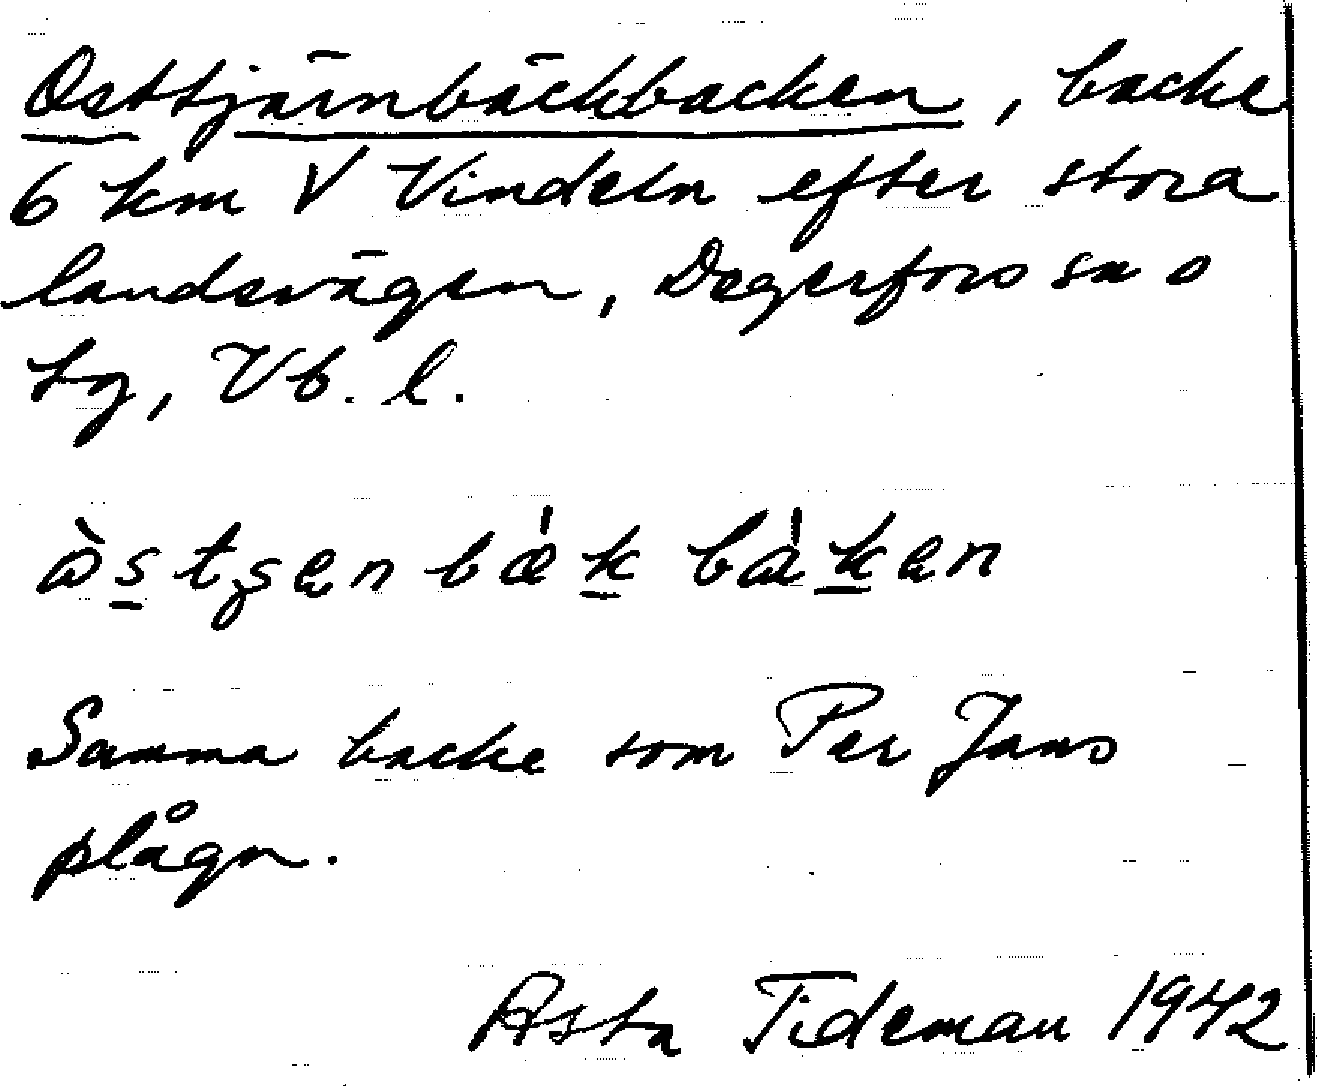 Osttjärnbäckbacken, backe
6 km V Vindeln efter stora
landsvägen, Degerfors sn o
tg, Vb. l.
Samma backe som Per Jans
plågn.
Asta Tideman 1942